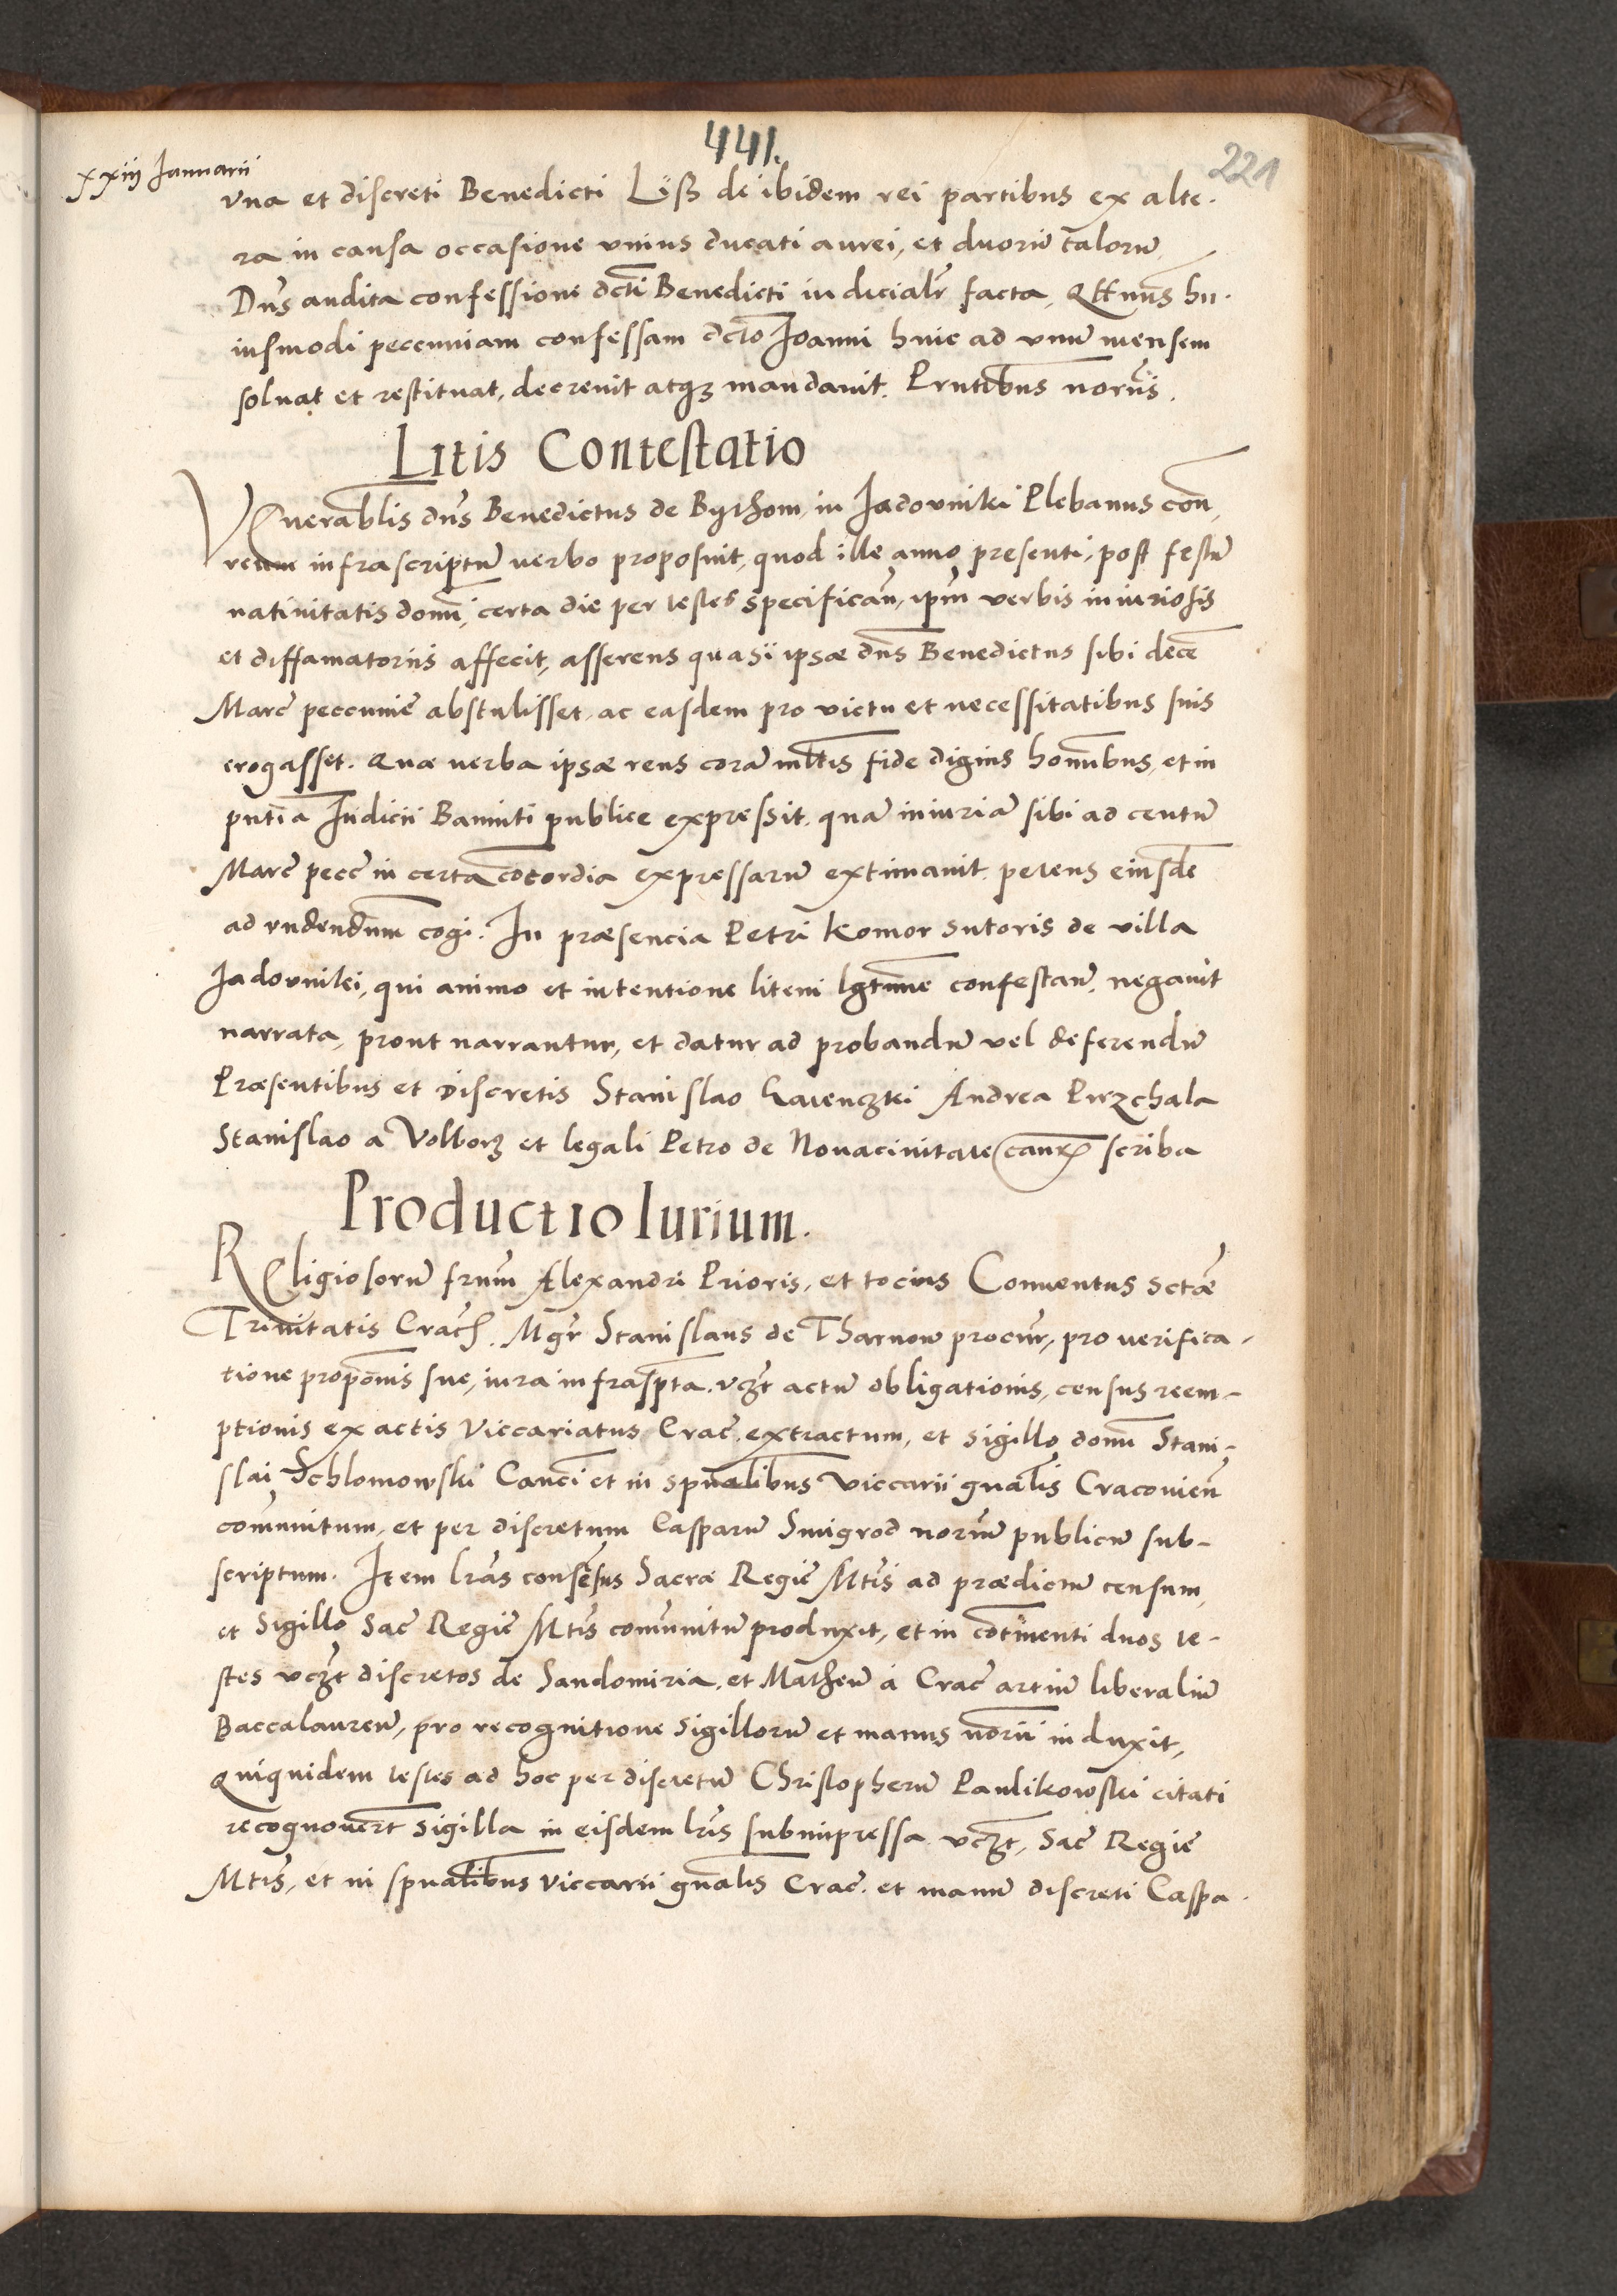 441.
221
xxiij Januarii
vna et discreti Benedicti Liß de ibidem rei partibus ex alte-
ra in causa occasione vnius ducati aurei, et duorũ talorũ
Dns audita confessione dcti Benedicti iudicialr facta, Qttnus hu-
iusmodi peccuniam confessam dcto Joanni hinc ad vnũ mensem
soluat et restituat, decreuit atqз mandauit. Prntibus noriis.
Litis Contestatio
Venerablis dns Benedictus de Bythom, in Jadovniki Plebanus con,
reum infrascriptũ verbo proposuit, quod ille anno presenti, post festũ
natiuitatis domi, certa die per testes specifican, ipm verbis iniuriosis
et diffamatoriis affecit, asserens quasi ipsæ dns Benedictus sibi decẽ
Marc peccunie abstulisset, ac easdem pro victu et necessitatibus suis
erogasset. Quæ uerba ipsæ reus corã mltis fide dignis homibus, et in
pntia Judicii Banniti publice expressit. quã iniuriã sibi ad centũ
Marc pecc in certa cocordia expressarũ extimauit. petens eiusdẽ
ad rndendum cogi. In præsencia Petri Komor sutoris de villa
Jadovniki, qui animo et intentione litem lgtime contestan, negauit
narrata, prout narrantur, et datur ad probandũ vel deferendũ
Præsentibus et discretis Stanislao Andrea Przchala
Stanislao a Volborz et legali Petro de Nouaciuitate caurũ scriba
Productio Iurium.
Religiosorũ frum Alexandri Prioris, et tocius Conuentus sctæ
Trinitatis Crach. Mgr Stanislaus de Tharnow procur, pro verifica-
tione propoonis sue, iura infraspta. vczt actũ obligationis, census reem-
ptionis ex actis Viccariatus Crac. extractum, et sigillo domi Stani-
slai Schlomowski Canci et in spualibus Viccarii gnalis Cracovien
comunitum, et per discretum Casparũ Smigrod noriũ publicũ sub-
scriptum. Item lras consẽsus Sacræ Regie Mtis ad prædictũ censum,
et Sigillo Sac Regie Mtis comunitũ produxit, et in cotinenti duos te-
stes vczt discretos de Sandomiria, et Matheũ à Crac artiũ liberaliũ
Baccalaureũ, pro recognitione sigillorũ et manus norii induxit,
Quiquidem testes ad hoc per discretũ Christopherũ Paulikowski citati
recognouert sigilla in eisdem lris subimpressa vczt, Sac Regie
Mtis, et in spualibus Viccarii gnalis Crac. et manũ discreti Caspa-